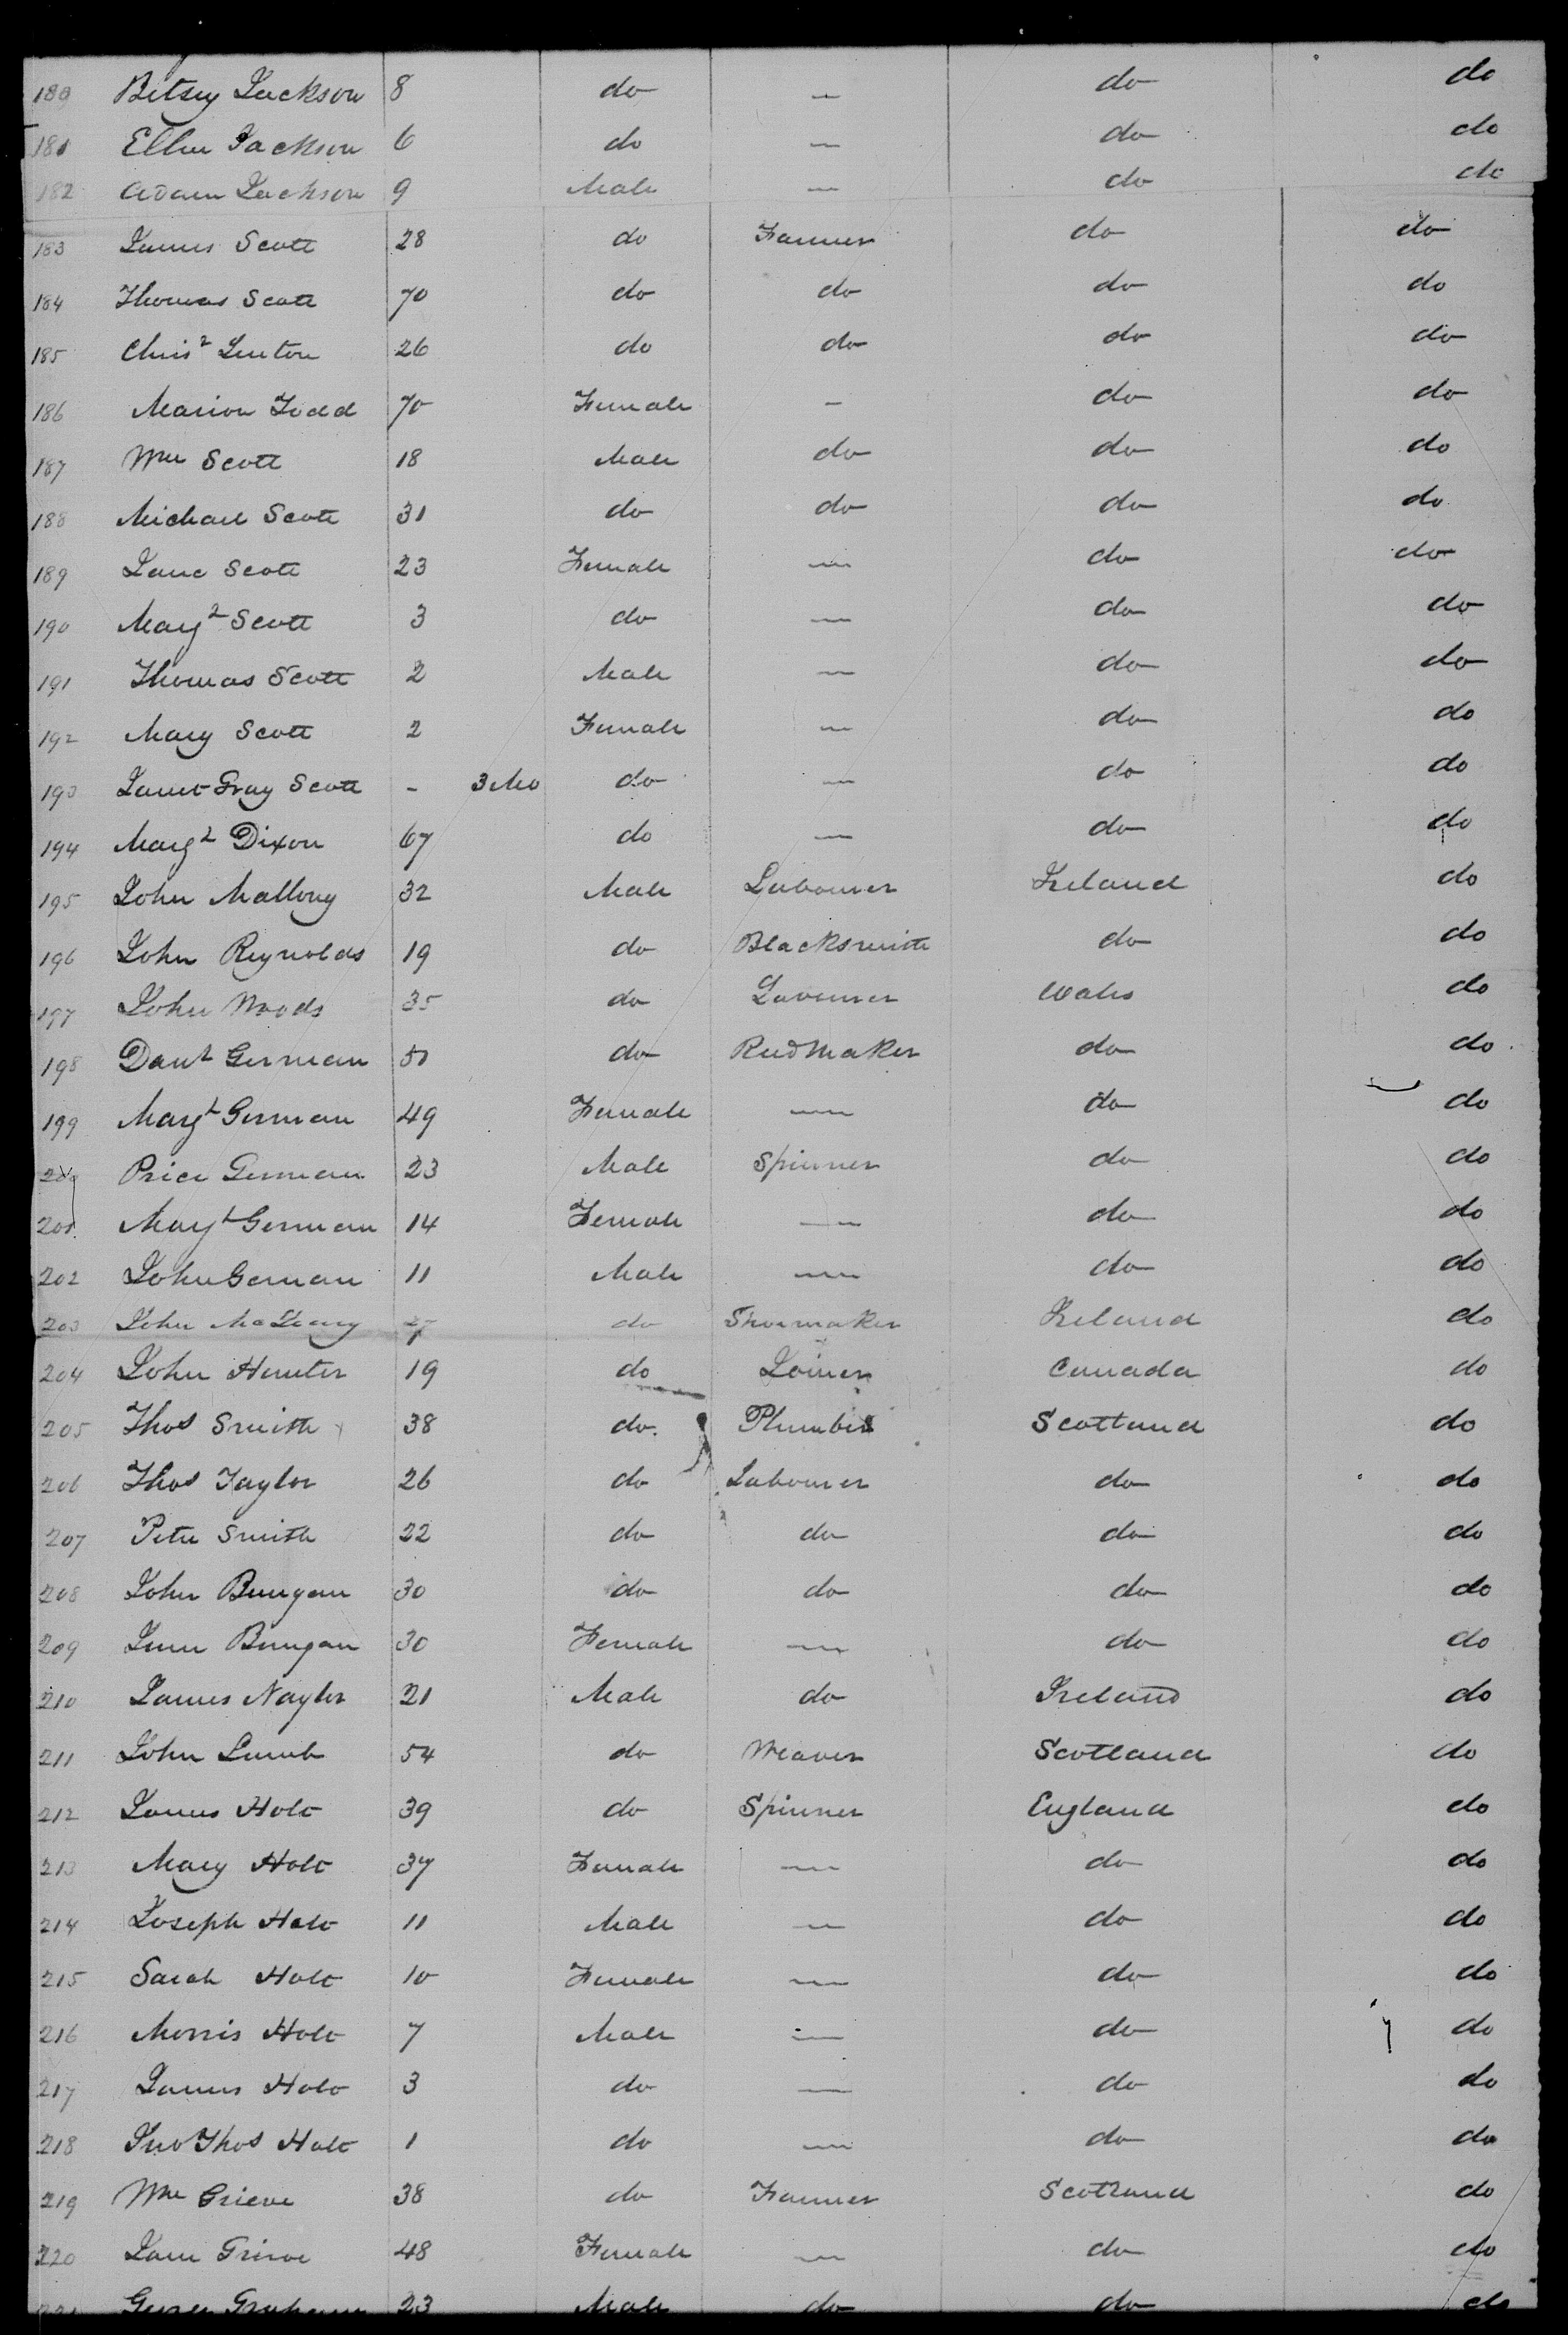 180 Betsy Jackson 8 do — do do
181 Ellen Jackson 6 do — do do
182 Adam Jackson 9 Male — do do
183 James Scott 28 do Farmer do do
184 Thomas Scott 70 do do do do
185 Chrisr Linton 26 do do do do
186 Marion Todd 70 Female - do do
187 Wm Scott 18 Male do do do
188 Michael Scott 31 do do do do
189 Jane Scott 23 Female — do do
190 Margt Scott 3 do — do do
191 Thomas Scott 2 Male — do do
192 Mary Scott 2 Female — do do
193 Janet Gray Scott - 3 Mo do — do do
194 Margt Dixon 67 do — do do
195 John Mallony 32 Male Labourer Ireland do
196 John Reynolds 19 do Blacksmith do do
197 John Woods 35 do Labourer Wales do
198 Danl German 50 do Reedmaker do do
199 Margt German 49 Female — do do
200 Price German 23 Male Spinner do do
201 Margt German 14 Female — do do
202 John German 11 Male — do do
203 John do Shoemaker Ireland do
204 John Hunter 19 do Joiner Canada do
205 Thos Smith 38 do. Plumber Scotland do
206 Thos Taylor 26 do Labourer do do
207 Peter Smith 22 do do do do
208 John Bungan 30 do do do do
209 Bungan 30 Female — do do
210 James Naylor 21 Male do Ireland do
211 John Lumb 54 do Weaver Scotland do
212 James Holt 39 do Spinner England do
213 Mary Holt 37 Female — do do
214 Joseph Holt 11 Male — do do
215 Sarah Holt 10 Female — do do
216 Morris Holt 7 Male — do do
217 James Holt 3 do — do do
218 Jno Thos Holt 1 do — do do
219 Wm Grieve 38 do Farmer Scotland do
220 Jane Grieve 48 Female — do do
221 George Graham 23 Male do do do